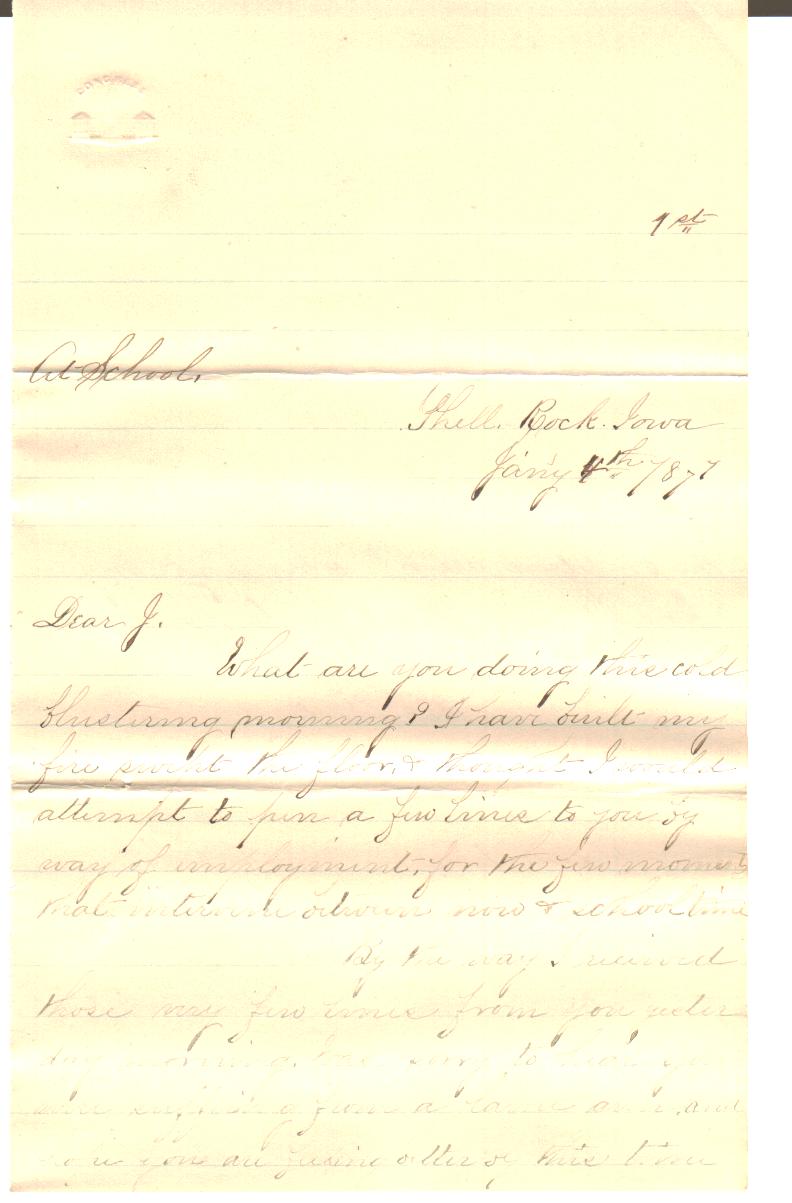 CONGRESS
1st
At School.
Shell. Rock. Iowa
Jan'y 4th 1877
Dear J.
What are you doing this cold
blustering morning? I have built my
fire swept the floor, & thought I would
attempt to pen a few lines to you by
way of employment, for the few moments
that intervene between now & school time
By the way I received
those very few lines from you yester
day morning. sorry to hear you
were suffering from a lame arm, and
hope you are feeling better by this time